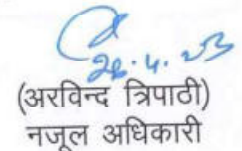 26.4.23
(अरविन्द त्रिपाठी)
नजूल अधिकारी